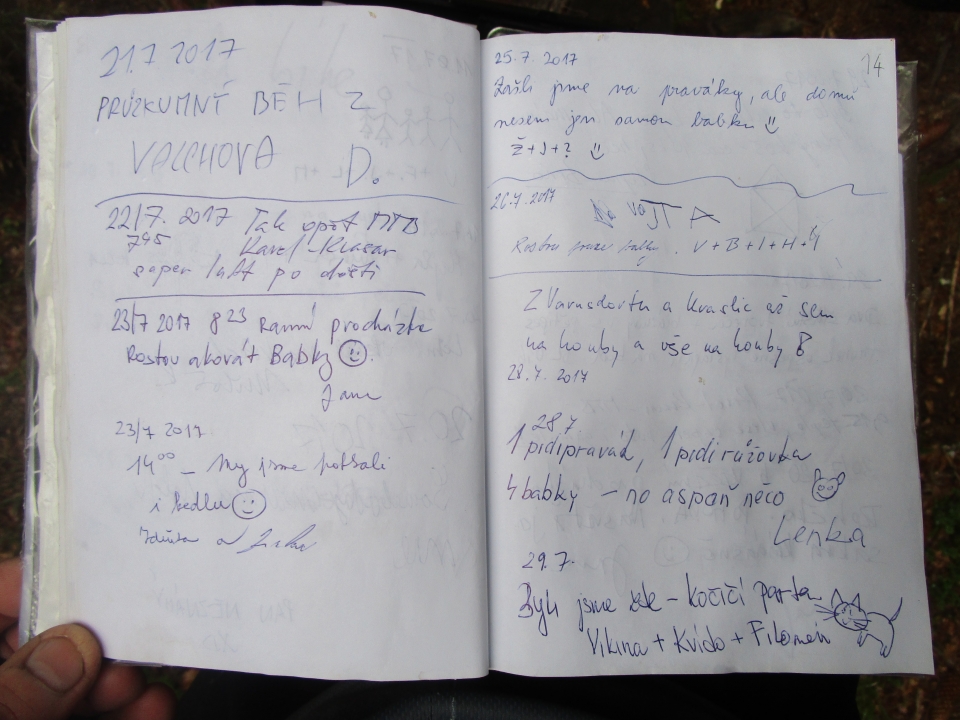 21.7 2017
PRŮZKUMNÝ BĚH Z
VALCHOVA D.
22/7. 2017 Tak opět MTB
7 45 Karel-Krasar
super luft po dešti
23/7 2017 8 23 Ranní procházka
Rostou akorát Babky
Jana
23/7 2017
14 00 – My jsme potkali
i bedlu
a
14
25.7. 2017
Zašli jsme na praváky, ale domů
nesem jen samou babku
Ž+J+?
26.7.2017
Rostou pouze babky. V+B+J+H+
Z Varnsdorfu a Kraslic až sem
na houby a vše na houby
28.7. 2017
28.7.
1 pidipravák, 1 pidirůžovka
4 babky – no aspaň něco
Lenka
29.7.
Byli jsme zde – kočičí parta
Vikina + Kvído + Filomén